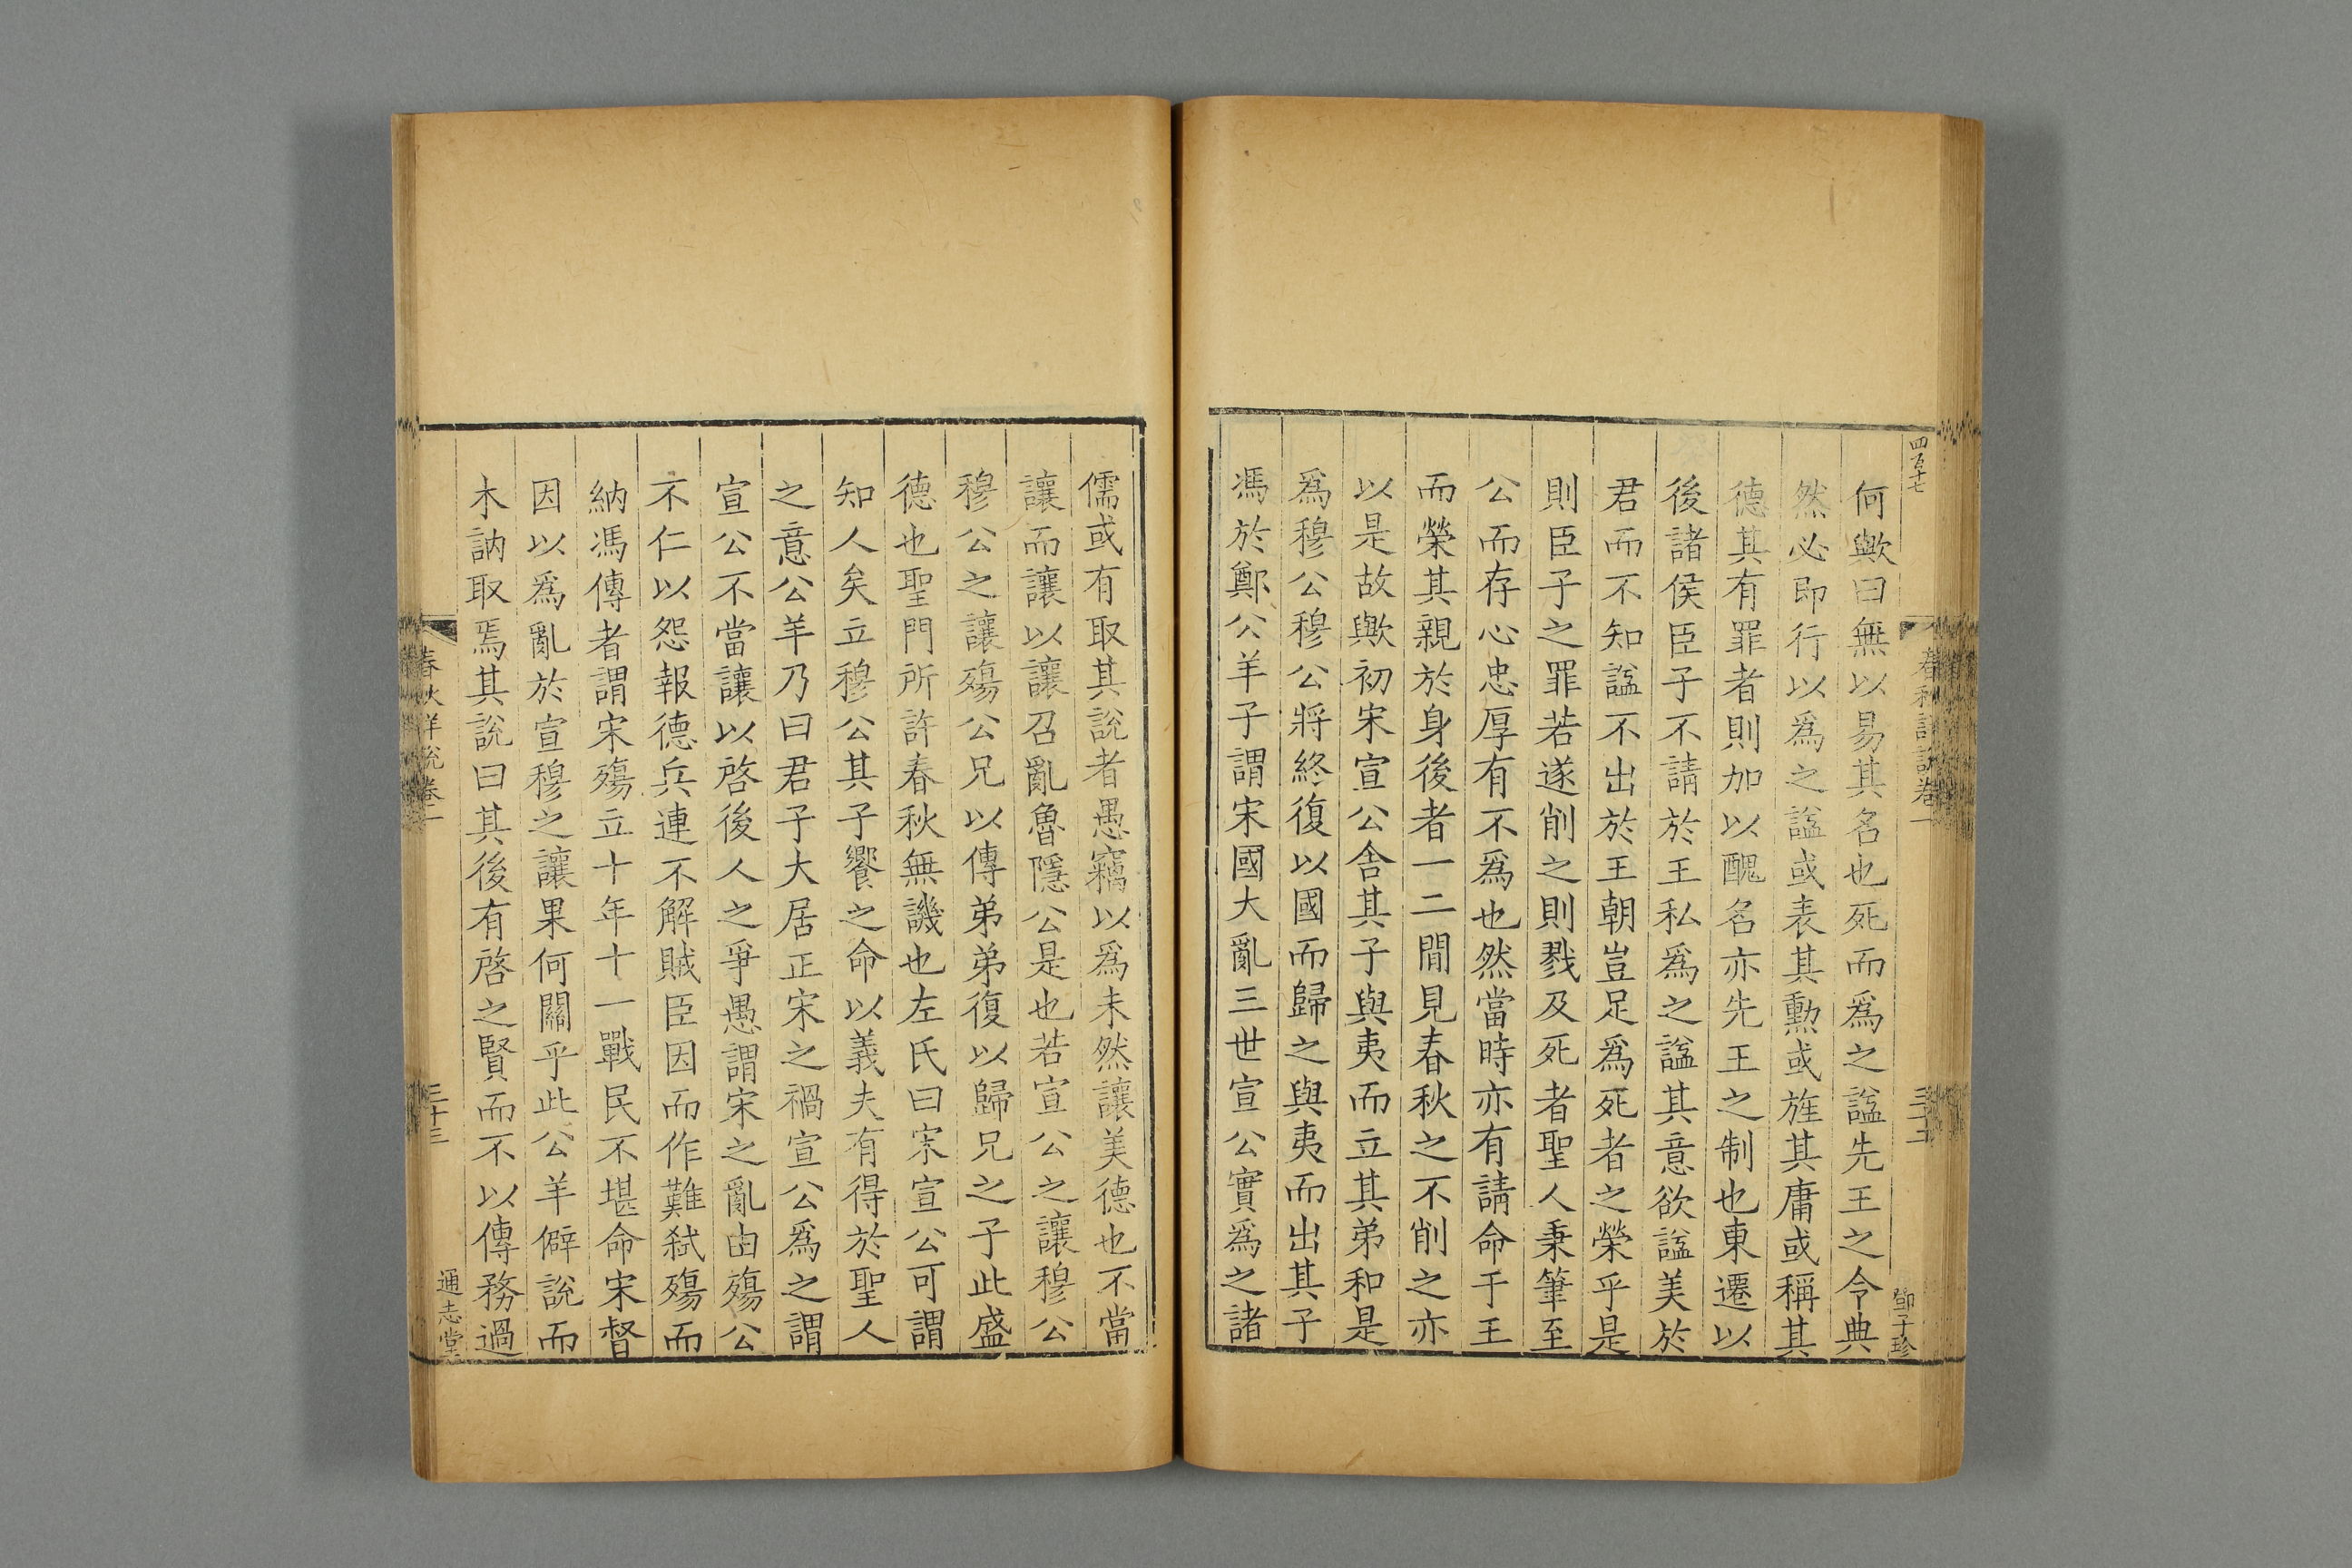 四百十七
春秋詳說卷一
三十二
鄧子珍
何歟曰無以易其名也死而爲之諡先王之令典
然必即行以爲之諡或表其勲或旌其庸或稱其
德其有罪者則加以醜名亦先王之制也東遷以
後諸侯臣子不請於王私爲之諡其意欲諡美於
君而不知諡不出於王朝豈足爲死者之榮乎是
則臣子之罪若遂削之則戮及死者聖人秉筆至
公而存心忠厚有不爲也然當時亦有請命于王
而榮其親於身後者一二閒見春秋之不削之亦
以是故歟初宋宣公舍其子與夷而立其弟和是
爲穆公穆公將終復以國而歸之與夷而出其子
馮於鄭公羊子謂宋國大亂三世宣公實爲之諸
儒或有取其說者愚竊以爲未然讓美德也不當
讓而讓以讓召亂魯隱公是也若宣公之讓穆公
穆公之讓殤公兄以傳弟弟復以歸兄之子此盛
德也聖門所許春秋無譏也左氏曰宋宣公可謂
知人矣立穆公其子饗之命以義夫有得於聖人
之意公羊乃曰君子大居正宋之禍宣公爲之謂
宣公不當讓以啓後人之爭愚謂宋之亂由殤公
不仁以怨報德兵連不解賊臣因而作難弑殤而
納馮傳者謂宋殤立十年十一戰民不堪命宋督
因以爲亂於宣穆之讓果何關乎此公羊僻說而
木訥取焉其說曰其後有啓之賢而不以傳務過
春秋詳說卷一
三十三
通志堂